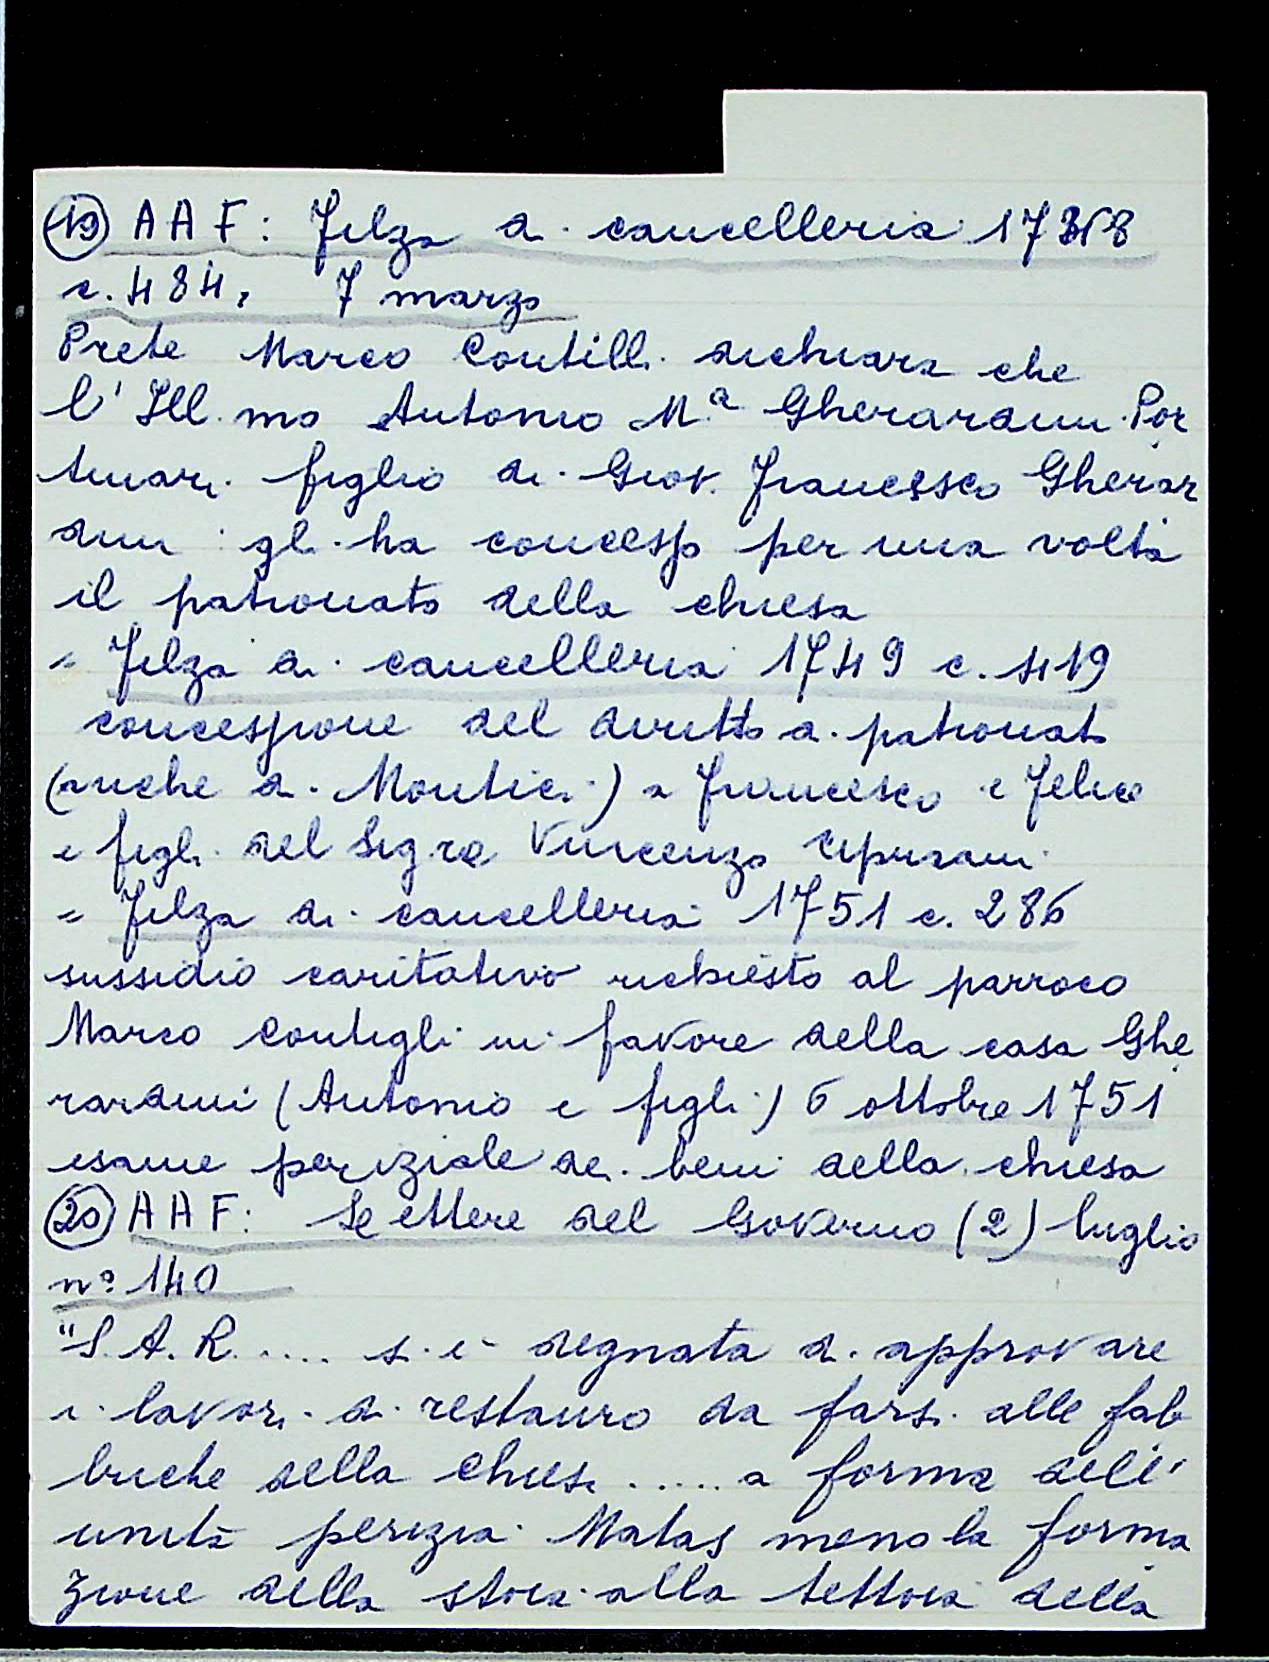 (19) AAF: Filza di cancelleria 17
c. 484, 7 marzo
Prete Marco Contilli dichiara che
l'Ill.mo Antonio M.a Gherardini Por
tinari figlio di Giov. Francesco Gherar
dini gli ha concesso per una volta
il patronato della chiesa
= Filza di cancelleria 1749 c. 419
concessione del diritto di patronato
(anche di Montici) a Francesco e Felice
e figli del Sig.re Vincenzo
= Filza di cancelleria 1751 c. 286
sussidio caritativo richiesto al parroco
Marco Contigli in favore della casa Ghe
rardini (Antonio e figli) 6 ottobre 1751
esame periziale dei beni della chiesa
(20) AAF: Lettere del Governo (2) luglio
n° 140
"S.A.R. .... si è degnata di approvare
i lavori di restauro da farsi alle fab
briche della chiesa ..... a forma dell'
unita perizia Matas meno la forma
zione della stoia alla tettoia della